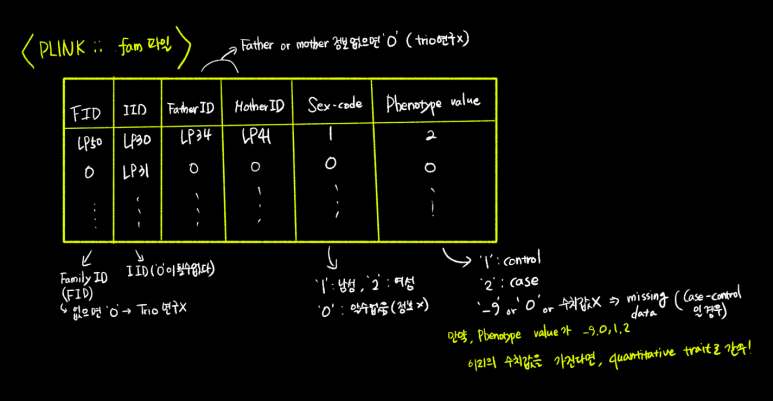 <PLINK :: fam 파일>
Father or mother 정보없으면 '0' (trio연구X)
FID IID FatherID MotherID Sex-code Phenotype value
LP50 LP30 LP34 LP41 1 2
0 LP31 0 0 0 0
Family ID
(FID)
↳ 없으면 '0' → Trio 연구X
IID ('0'이 될수없다)
'1': 남성, '2': 여성
'0': 알수없음 (정보 x)
'1': control
'2': case
'-9' or '0' or 수치값X ⇒ missing data (Case-control 인 경우)
만약, Phenotype value가 -9,0,1,2
이외의 수치값을 가진다면, quantitative trait로 간주!